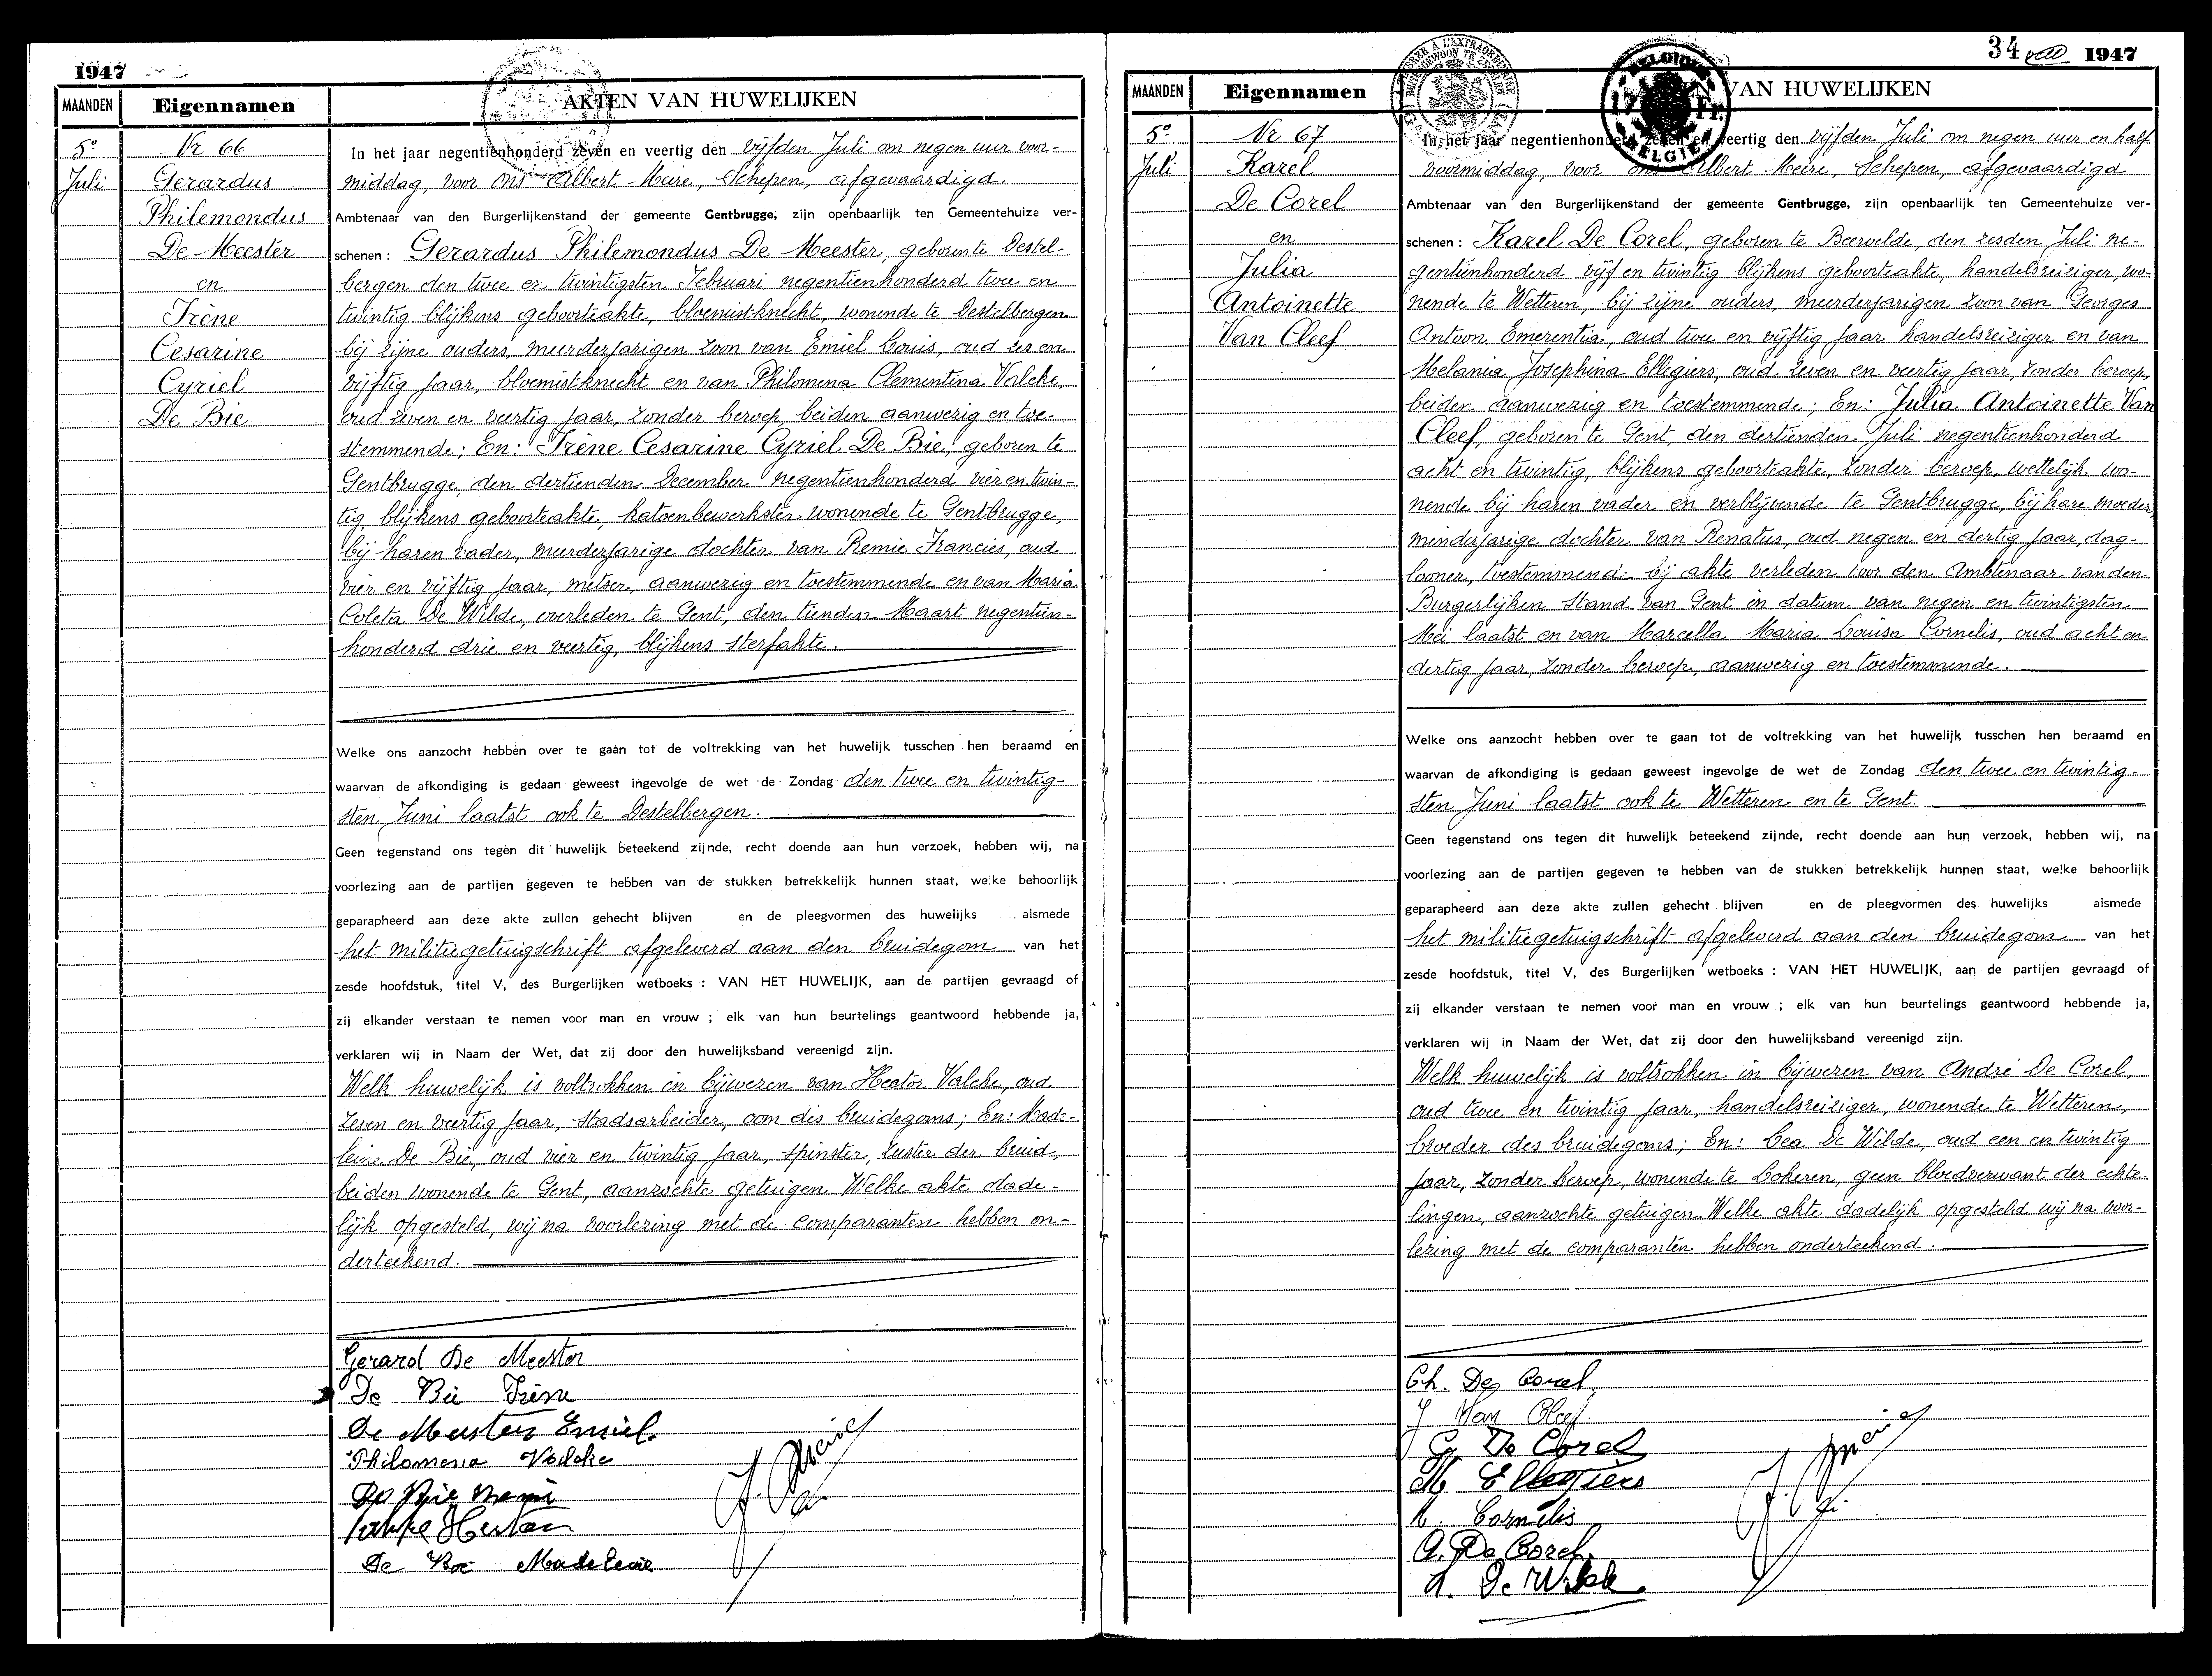 1947
MAANDEN Eigennamen AKTEN VAN HUWELIJKEN
5e Juli
Nr 66
Gerardus
Philemondus
De Meester
en
Irène
Cesarine
Cyriel
De Bie
In het jaar negentienhonderd zeven en veertig den vijfden Juli om negen uur voor-
middag, voor ons Albert Meire, Schepen, afgevaardigd
Ambtenaar van den Burgerlijkenstand der gemeente Gentbrugge, zijn openbaarlijk ten Gemeentehuize ver-
schenen : Gerardus Philemondus De Meester, geboren te Destel-
bergen den twee en twintigsten Februari negentienhonderd twee en
twintig blijkens geboorteakte, bloemist-knecht, wonende te Destelbergen
bij zijne ouders, meerderjarigen zoon van Emiel Louis, oud zes en
vijftig jaar, bloemistknecht en van Philomena Clementina Valcke,
oud zeven en veertig jaar, zonder beroep, beiden aanwezig en toe-
stemmende; En: Irène Cesarine Cyriel De Bie, geboren te
Gentbrugge, den dertienden December negentienhonderd vier en twin-
tig, blijkens geboorteakte, katoenbewerkster wonende te Gentbrugge,
bij haren vader, meerderjarige dochter van Remie Francies, oud
vier en vijftig jaar, metser, aanwezig en toestemmende en van Maria
Coleta De Wilde, overleden te Gent, den tienden Maart negentien-
honderd drie en veertig, blijkens sterfakte.
Welke ons aanzocht hebben over te gaan tot de voltrekking van het huwelijk tusschen hen beraamd en
waarvan de afkondiging is gedaan geweest ingevolge de wet de Zondag den twee en twintig-
sten Juni laatst ook te Destelbergen.
Geen tegenstand ons tegen dit huwelijk beteekend zijnde, recht doende aan hun verzoek, hebben wij, na
voorlezing aan de partijen gegeven te hebben van de stukken betrekkelijk hunnen staat, welke behoorlijk
geparapheerd aan deze akte zullen gehecht blijven en de pleegvormen des huwelijks alsmede
het militiegetuigschrift afgeleverd aan den bruidegom van het
zesde hoofdstuk, titel V, des Burgerlijken wetboeks : VAN HET HUWELIJK, aan de partijen gevraagd of
zij elkander verstaan te nemen voor man en vrouw ; elk van hun beurtelings geantwoord hebbende ja,
verklaren wij in Naam der Wet, dat zij door den huwelijksband vereenigd zijn.
Welk huwelijk is voltrokken in bijwezen van Hector Valcke, oud
zeven en veertig jaar, stadsarbeider, oom des bruidegoms; En: Made-
leine De Bie, oud vier en twintig jaar, spinster, zuster der bruid,
beiden wonende te Gent, aanzochte getuigen. Welke akte dade-
lijk opgesteld, wij na voorlezing met de comparanten hebben on-
derteekend.
Gerard De Meester
De Bie Irène
De Meester Emiel
Philomena Valcke
De Bie Remie
Valcke Hector
De Bie Madeleine
A. Meire
34 1947
MAANDEN Eigennamen VAN HUWELIJKEN
5e Juli
Nr 67
Karel
De Corel
en
Julia
Antoinette
Van Cleef
In het jaar negentienhonderd zeven en veertig den vijfden Juli om negen uur en half
voormiddag, voor ons Albert Meire, Schepen, afgevaardigd
Ambtenaar van den Burgerlijkenstand der gemeente Gentbrugge, zijn openbaarlijk ten Gemeentehuize ver-
schenen : Karel De Corel, geboren te Beervelde, den zesden Juli ne-
gentienhonderd vijf en twintig blijkens geboorteakte, handelsreiziger, wo-
nende te Wetteren, bij zijne ouders, meerderjarigen zoon van Georges
Antoon Emerentia, oud twee en vijftig jaar handelsreiziger en van
Melania Josephina Ellegiers, oud zeven en veertig jaar, zonder beroep,
beiden aanwezig en toestemmende; En: Julia Antoinette Van
Cleef, geboren te Gent, den dertienden Juli negentienhonderd
acht en twintig, blijkens geboorteakte, zonder beroep, wettelijk wo-
nende bij haren vader en verblijvende te Gentbrugge, bij hare moeder,
minderjarige dochter van Renatus, oud negen en dertig jaar, dag-
looner, toestemmend bij akte verleden voor den Ambtenaar van den
Burgerlijken Stand van Gent in datum van negen en twintigsten
Mei laatst en van Marcella Maria Louisa Cornelis, oud acht en
dertig jaar, zonder beroep, aanwezig en toestemmende.
Welke ons aanzocht hebben over te gaan tot de voltrekking van het huwelijk tusschen hen beraamd en
waarvan de afkondiging is gedaan geweest ingevolge de wet de Zondag den twee en twintig-
sten Juni laatst ook te Wetteren en te Gent.
Geen tegenstand ons tegen dit huwelijk beteekend zijnde, recht doende aan hun verzoek, hebben wij, na
voorlezing aan de partijen gegeven te hebben van de stukken betrekkelijk hunnen staat, welke behoorlijk
geparapheerd aan deze akte zullen gehecht blijven en de pleegvormen des huwelijks alsmede
het militiegetuigschrift afgeleverd aan den bruidegom van het
zesde hoofdstuk, titel V, des Burgerlijken wetboeks : VAN HET HUWELIJK, aan de partijen gevraagd of
zij elkander verstaan te nemen voor man en vrouw ; elk van hun beurtelings geantwoord hebbende ja,
verklaren wij in Naam der Wet, dat zij door den huwelijksband vereenigd zijn.
Welk huwelijk is voltrokken in bijwezen van André De Corel,
oud twee en twintig jaar, handelsreiziger, wonende te Wetteren,
broeder des bruidegoms; En: Lea De Wilde, oud een en twintig
jaar, zonder beroep, wonende te Lokeren, geen bloedverwant der echte-
lingen, aanzochte getuigen. Welke akte dadelijk opgesteld wij na voor-
lezing met de comparanten hebben onderteekend.
Ch. De Corel
J Van Cleef
G De Corel
M Ellegiers
M. Cornelis
A. De Corel
L. De Wilde
A. Meire